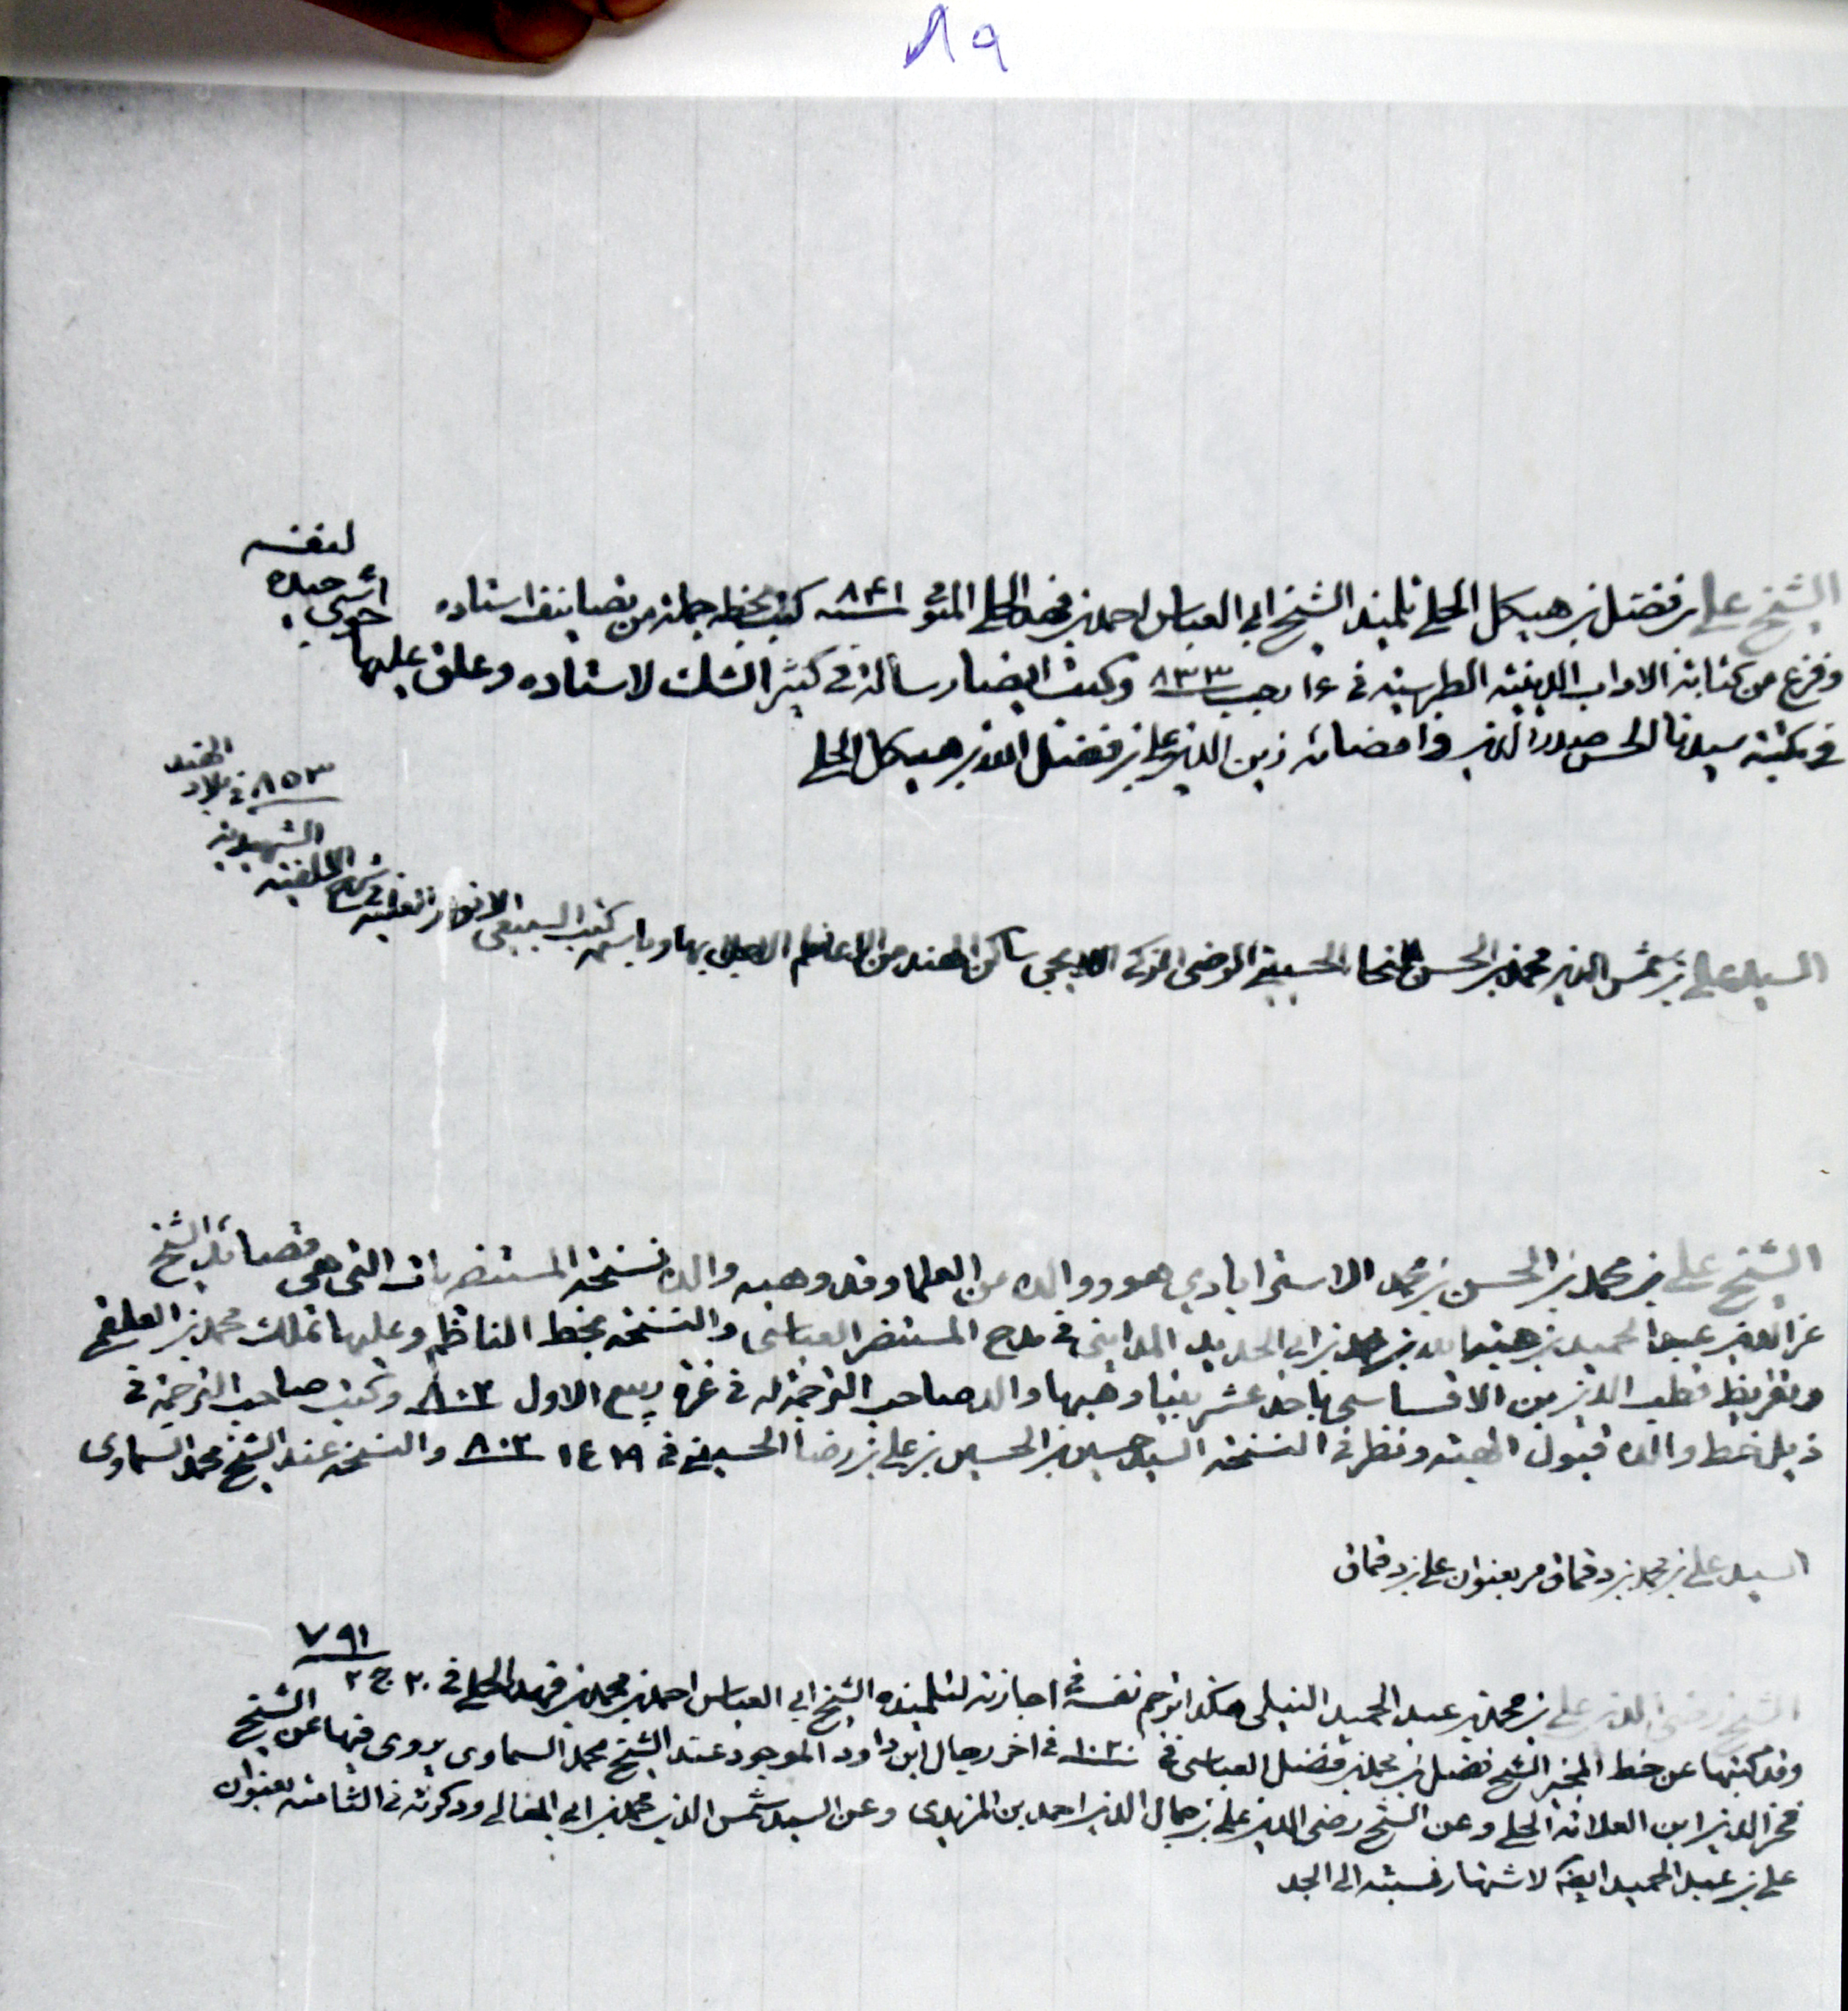 ٨٩
الشيخ علي بن فضل بن هيكل الحلي تلميذ الشيخ ابي العباس احمد بن فهد الحلي المتوفى ٨٤١ كتب بخطه جملة من تصانيف استاده لنفسه
وفرغ من كتابة الاداب الدينية الطبرسية في ١٤ رجب ٨٣٣ وكتب ايضا رسالة في كثير الشك لاستاده وعلق عليها حواشي جيدة
في مكتبة سيدنا الحسن صدر الدين وامضائه زين الدين علي بن فضل الله بن هيكل الحلي
السيد علي بن شمس الدين محمد بن الحسن الحسيني الرضى ساكن الهند من الاعاظم الاجلاء بها وباسمه كتب السبيعي الانوار العلية في شرح الالفية
الشهيدية
٨٥٣ في بلاد الهند
الشيخ علي بن محمد بن الحسن بن محمد الاسترابادي هو ووالده من العلما وقد وهبه والده نسخة المستنصريات التي هي قصائد الشيخ
عز الدين عبد الحميد بن هبة الله بن ابي الحديد المدايني في مدح المستنصر العباسي والنسخة بخط الناظم وعليها تملك محمد بن العلقمي
وتقريظ قطب الدين بن الاقساسي باحد عشر بيتا وهبها والد صاحب الترجمة له في غرة ربيع الاول ٨٠٣ وكتب صاحب الترجمة في
ذيل خط والده قبول الهبة ونظر في النسخة السيد حسين بن الحسين بن علي بن رضا الحسيني في ١٤ ٢٩ ٨٠٣ والنسخة عند الشيخ محمد السماوي
السيد علي بن محمد بن دقماق مر بعنوان علي بن دقماق
الشيخ رضى الدين علي بن محمد بن عبد الحميد النيلي هكذا ترجم نفسه في اجازته لتلميذه الشيخ ابي العباس احمد بن محمد بن فهد الحلي في ٢٠ ج ٢ ٧٩١
وقد كتبها عن خط المجيز الشيخ فضل بن محمد بن فضل العباسي في ١٠٢٠ في اخر رجال ابن داود الموجود عند الشيخ محمد السماوي يروي فيها عن الشيخ
فخر الدين ابن العلامة الحلي وعن الشيخ رضى الدين علي بن جمال الدين احمد بن المزيدي وعن السيد شمس الدين محمد بن ابي المعالي وذكرته في الثامنة بعنوان
علي بن عبد الحميد ايضا لاشتهار نسبته الى الجد